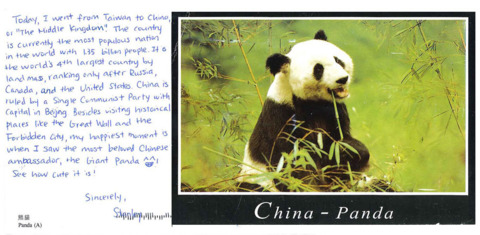 Today, I went from Taiwan to China,
or "The Middle Kingdom". The country
is currently the most populous nation
in the world with 1.35 billion people. It is
the world's 4th largest country by
land mass, ranking only after Russia,
Canada, and the United States. China is
ruled by a Single Communist Party with
capital in Beijing. Besides visiting historical
places like the Great Wall and the
Forbidden City, my happiest moment is
when I saw the most beloved Chinese
ambassador, the Giant Panda ^^!
See how cute it is!
Sincerely,
熊貓
Panda (A)
China - Panda